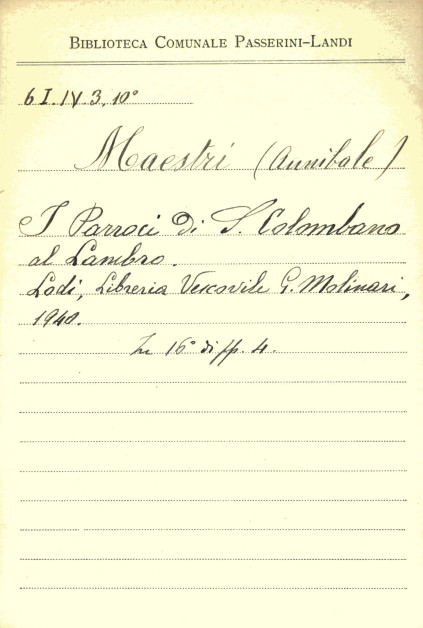 BIBLIOTECA COMUNALE PASSERINI-LANDI
6 I. IV. 3. 10°
Maestri (Annibale)
I Parroci di S. Colombano
al Lambro.
Lodi, Libreria Vescovile G. Molinari,
1940.
In 16° di pp. 4.